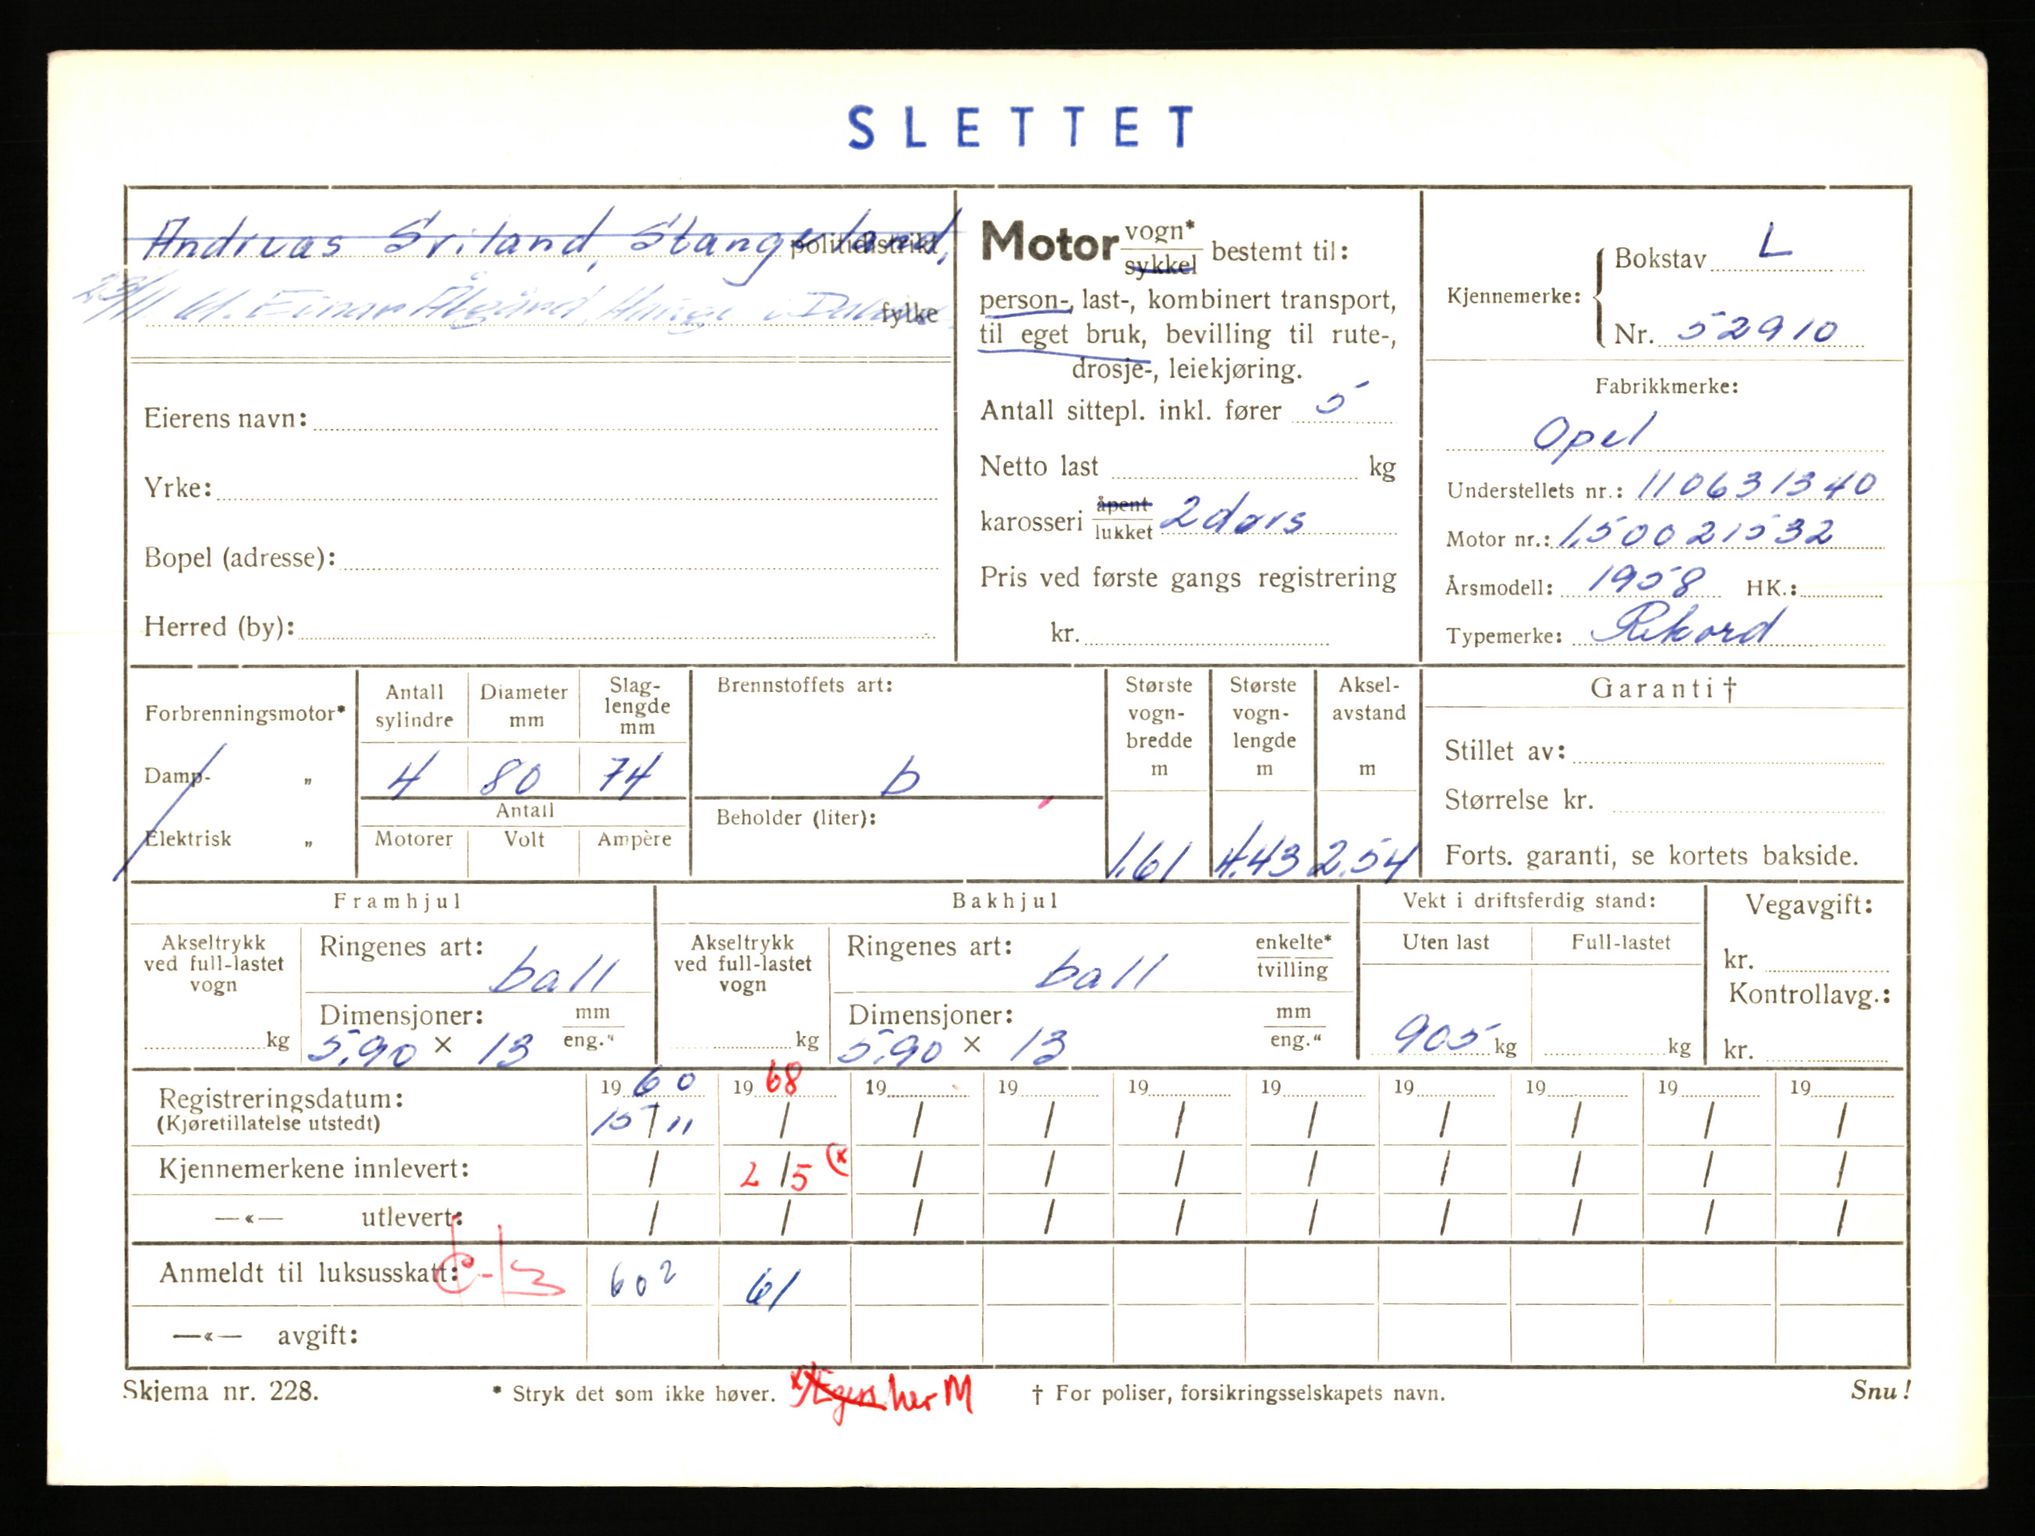 SLETTET
Andreas Sviland, Stangeland,
politidistrikt
23/11 61. Einar Ålgård, Hauge i Dalane
fylke
Eierens navn:
Yrke:
Bopel (adresse):
Herred (by):
Motor vogn* sykkel bestemt til:
person-, last-, kombinert transport,
til eget bruk, bevilling til rute-,
drosje-, leiekjøring.
Antall sittepl. inkl. fører 5
Netto last kg
karosseri åpent lukket 2 dørs
Pris ved første gangs registrering
kr.
Kjennemerke: Bokstav L
Nr. 52910
Fabrikkmerke:
Opel
Understellets nr.: 110631340
Motor nr.: 1,50021532
Årsmodell: 1958 HK.:
Typemerke: Rekord
Forbrenningsmotor*
Damp- „
Elektrisk „
Antall sylindre Diameter mm Slag-lengde mm
4 80 74
Antall
Motorer Volt Ampère
Brennstoffets art:
b
Beholder (liter):
Største vogn-bredde m
1,61
Største vogn-lengde m
4,43
Aksel-avstand m
2,54
Garanti †
Stillet av:
Størrelse kr.
Forts. garanti, se kortets bakside.
Framhjul
Akseltrykk ved full-lastet vogn
kg
Ringenes art: ball
Dimensjoner: mm eng."
5,90 × 13
Bakhjul
Akseltrykk ved full-lastet vogn
kg
Ringenes art: ball enkelte* tvilling
Dimensjoner: mm eng."
5,90 × 13
Vekt i driftsferdig stand:
Uten last Full-lastet
905 kg kg
Vegavgift:
kr.
Kontrollavg.:
kr.
Registreringsdatum: 1960 1968 19 19 19 19 19 19 19 19
(Kjøretillatelse utstedt) 15/11 / / / / / / / / /
Kjennemerkene innlevert: / 2/5 (x / / / / / / / /
—«— utlevert: / / / / / / / / / /
Anmeldt til luksusskatt: 60² 61
—«— avgift:
Skjema nr. 228. * Stryk det som ikke høver. x) Egers her M † For poliser, forsikringsselskapets navn. Snu!